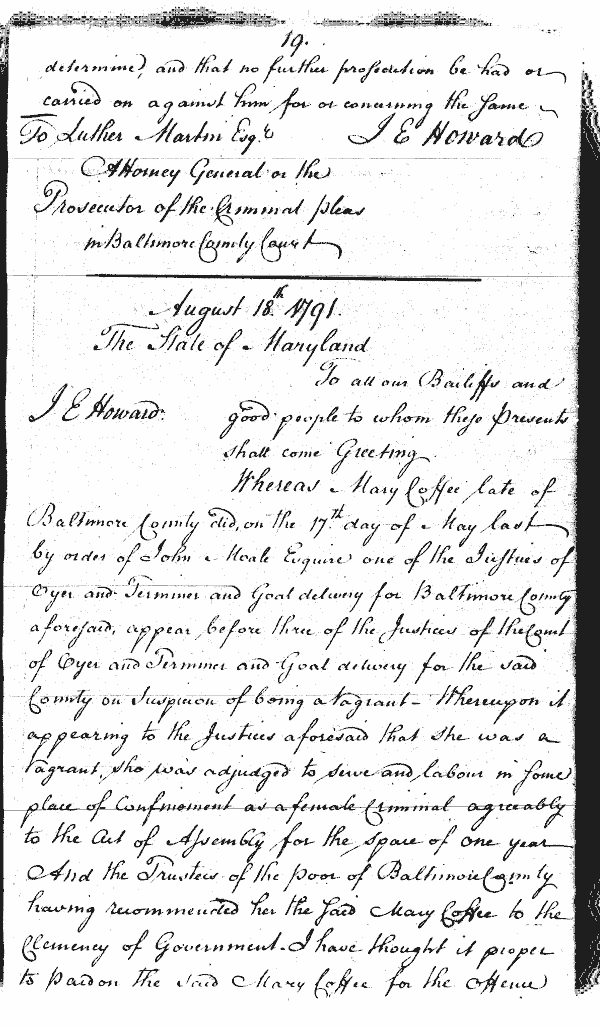 19.
determine, and that no further prosecution be had or
carried on against him for or concerning the same
To Luther Martin Esqr. J E Howard
Attorney General or the
Prosecutor of the Criminal pleas
in Baltimore County Court
August 18th 1791.
The State of Maryland
To all our Bailiffs and
J E Howard. good people to whom these Presents
shall come Greeting
Whereas Mary Coffee late of
Baltimore County did, on the 17th day of May last
by order of John Moale Esquire one of the Justices of
Oyer and Terminer and Goal delivery for Baltimore County
aforesaid, appear before three of the Justices of the Court
of Oyer and Terminer and Goal delivery for the said
County on Suspicion of being a Vagrant - Whereupon it
appearing to the Justices aforesaid that she was a
Vagrant, she was adjudged to serve and labour in some
place of Confinement as a female Criminal agreeably
to the Act of Assembly for the space of one year
And the Trustees of the poor of Baltimore County
having recommended her the said Mary Coffee to the
Clemency of Government - I have thought it proper
to Pardon the said Mary Coffee for the offence